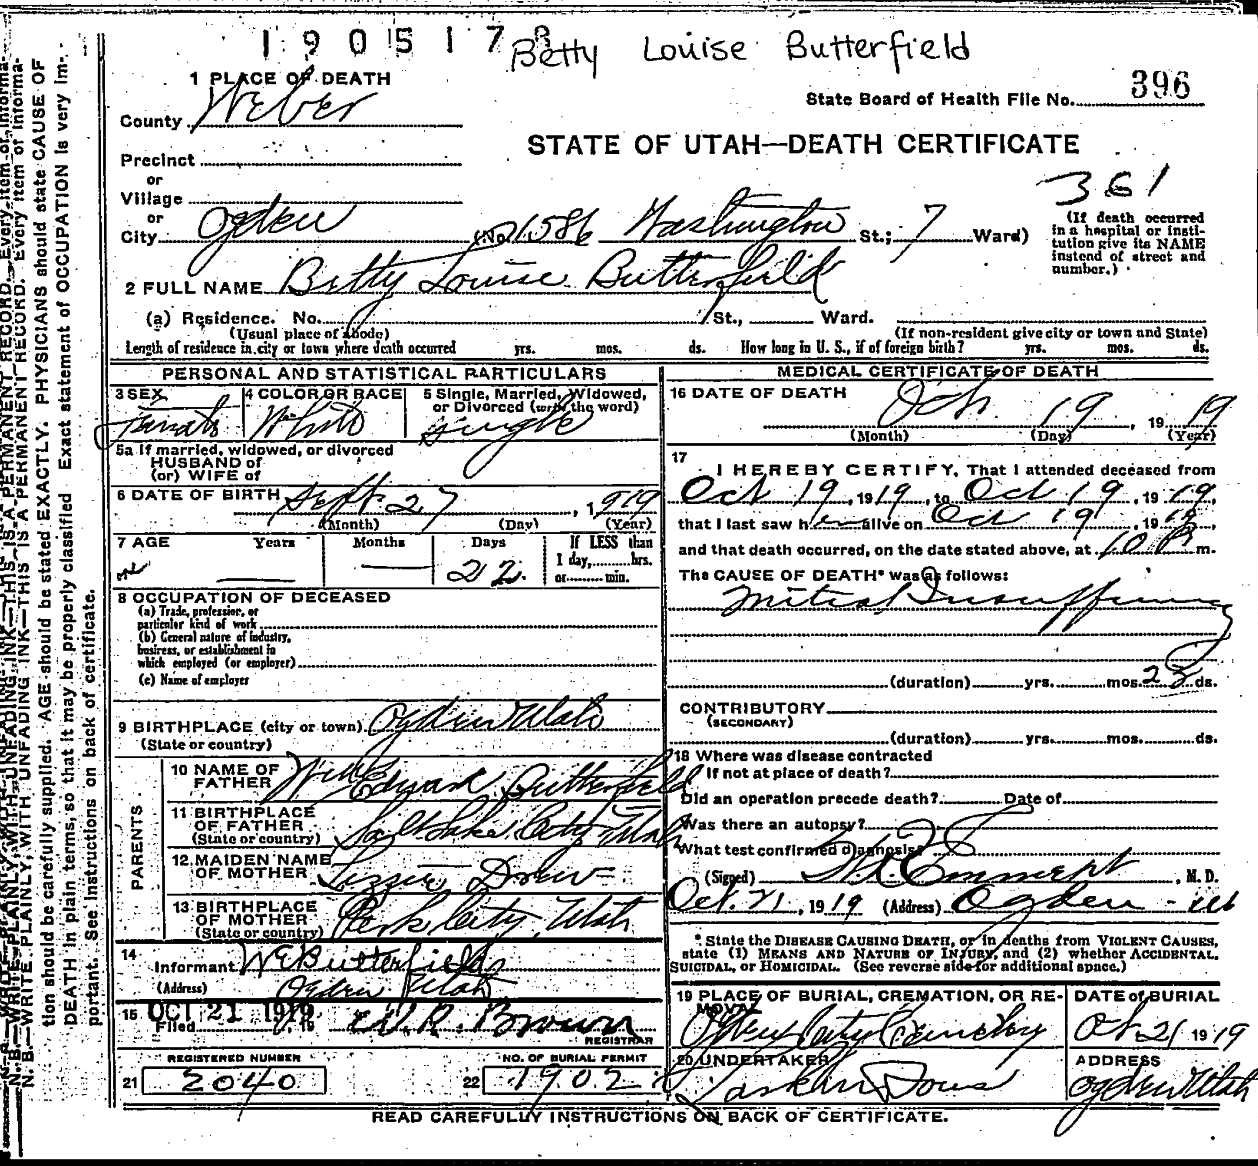 1905178
Betty Louise Butterfield
1 PLACE OF DEATH
State Board of Health File No. 396
County Weber
STATE OF UTAH—DEATH CERTIFICATE
Precinct
or
Village
361
or
City Ogden (No. 1586 Washington St.; 7 Ward)
(If death occurred in a hospital or institution give its NAME instead of street and number.)
2 FULL NAME Betty Louise Butterfield
(a) Residence. No. St., Ward.
(Usual place of abode) (If non-resident give city or town and State)
Length of residence in city or town where death occurred yrs. mos. ds. How long in U. S., if of foreign birth? yrs. mos. ds.
PERSONAL AND STATISTICAL PARTICULARS
3 SEX Female
4 COLOR OR RACE White
5 Single, Married, Widowed, or Divorced (write the word) Single
5a If married, widowed, or divorced
HUSBAND of
(or) WIFE of
6 DATE OF BIRTH Sept. 27, 1919
(Month) (Day) (Year)
7 AGE Years Months Days If LESS than
22 1 day, hrs.
or min.
8 OCCUPATION OF DECEASED
(a) Trade, profession, or
particular kind of work
(b) General nature of industry,
business, or establishment in
which employed (or employer)
(c) Name of employer
9 BIRTHPLACE (city or town) Ogden Utah
(State or country)
PARENTS
10 NAME OF FATHER Edward Butterfield
11 BIRTHPLACE OF FATHER Salt Lake City Utah
(State or country)
12 MAIDEN NAME OF MOTHER Lizzie Drew
13 BIRTHPLACE OF MOTHER Park City, Utah
(State or country)
14
Informant W E Butterfield
(Address) Ogden Utah
15 OCT 21 1919
Filed , 19 W. R. Brown
REGISTRAR
REGISTERED NUMBER
21 2040
NO. OF BURIAL PERMIT
22 1902
MEDICAL CERTIFICATE OF DEATH
16 DATE OF DEATH Oct. 19, 1919
(Month) (Day) (Year)
17
I HEREBY CERTIFY, That I attended deceased from
Oct 19, 1919, to Oct 19, 1919,
that I last saw her alive on Oct 19, 1919,
and that death occurred, on the date stated above, at 10 P m.
The CAUSE OF DEATH* was as follows:
Mitral Insufficiency
(duration) yrs. mos. ds.
CONTRIBUTORY
(SECONDARY)
(duration) yrs. mos. ds.
18 Where was disease contracted
If not at place of death?
Did an operation precede death? Date of
Was there an autopsy?
What test confirmed diagnosis?
(Signed) Emmert, M. D.
Oct. 21, 1919 (Address) Ogden - Ut
* State the DISEASE CAUSING DEATH, or in deaths from VIOLENT CAUSES,
state (1) MEANS AND NATURE OF INJURY, and (2) whether ACCIDENTAL,
SUICIDAL, or HOMICIDAL. (See reverse side for additional space.)
19 PLACE OF BURIAL, CREMATION, OR REMOVAL
Ogden City Cemetery
DATE of BURIAL
Oct 21 1919
20 UNDERTAKER
Larkin Sons
ADDRESS
Ogden Utah
READ CAREFULLY INSTRUCTIONS ON BACK OF CERTIFICATE.
N. B.—WRITE PLAINLY, WITH UNFADING INK—THIS IS A PERMANENT RECORD. Every item of informa-
tion should be carefully supplied. AGE should be stated EXACTLY. PHYSICIANS should state CAUSE OF
DEATH in plain terms, so that it may be properly classified. Exact statement of OCCUPATION is very im-
portant. See instructions on back of certificate.